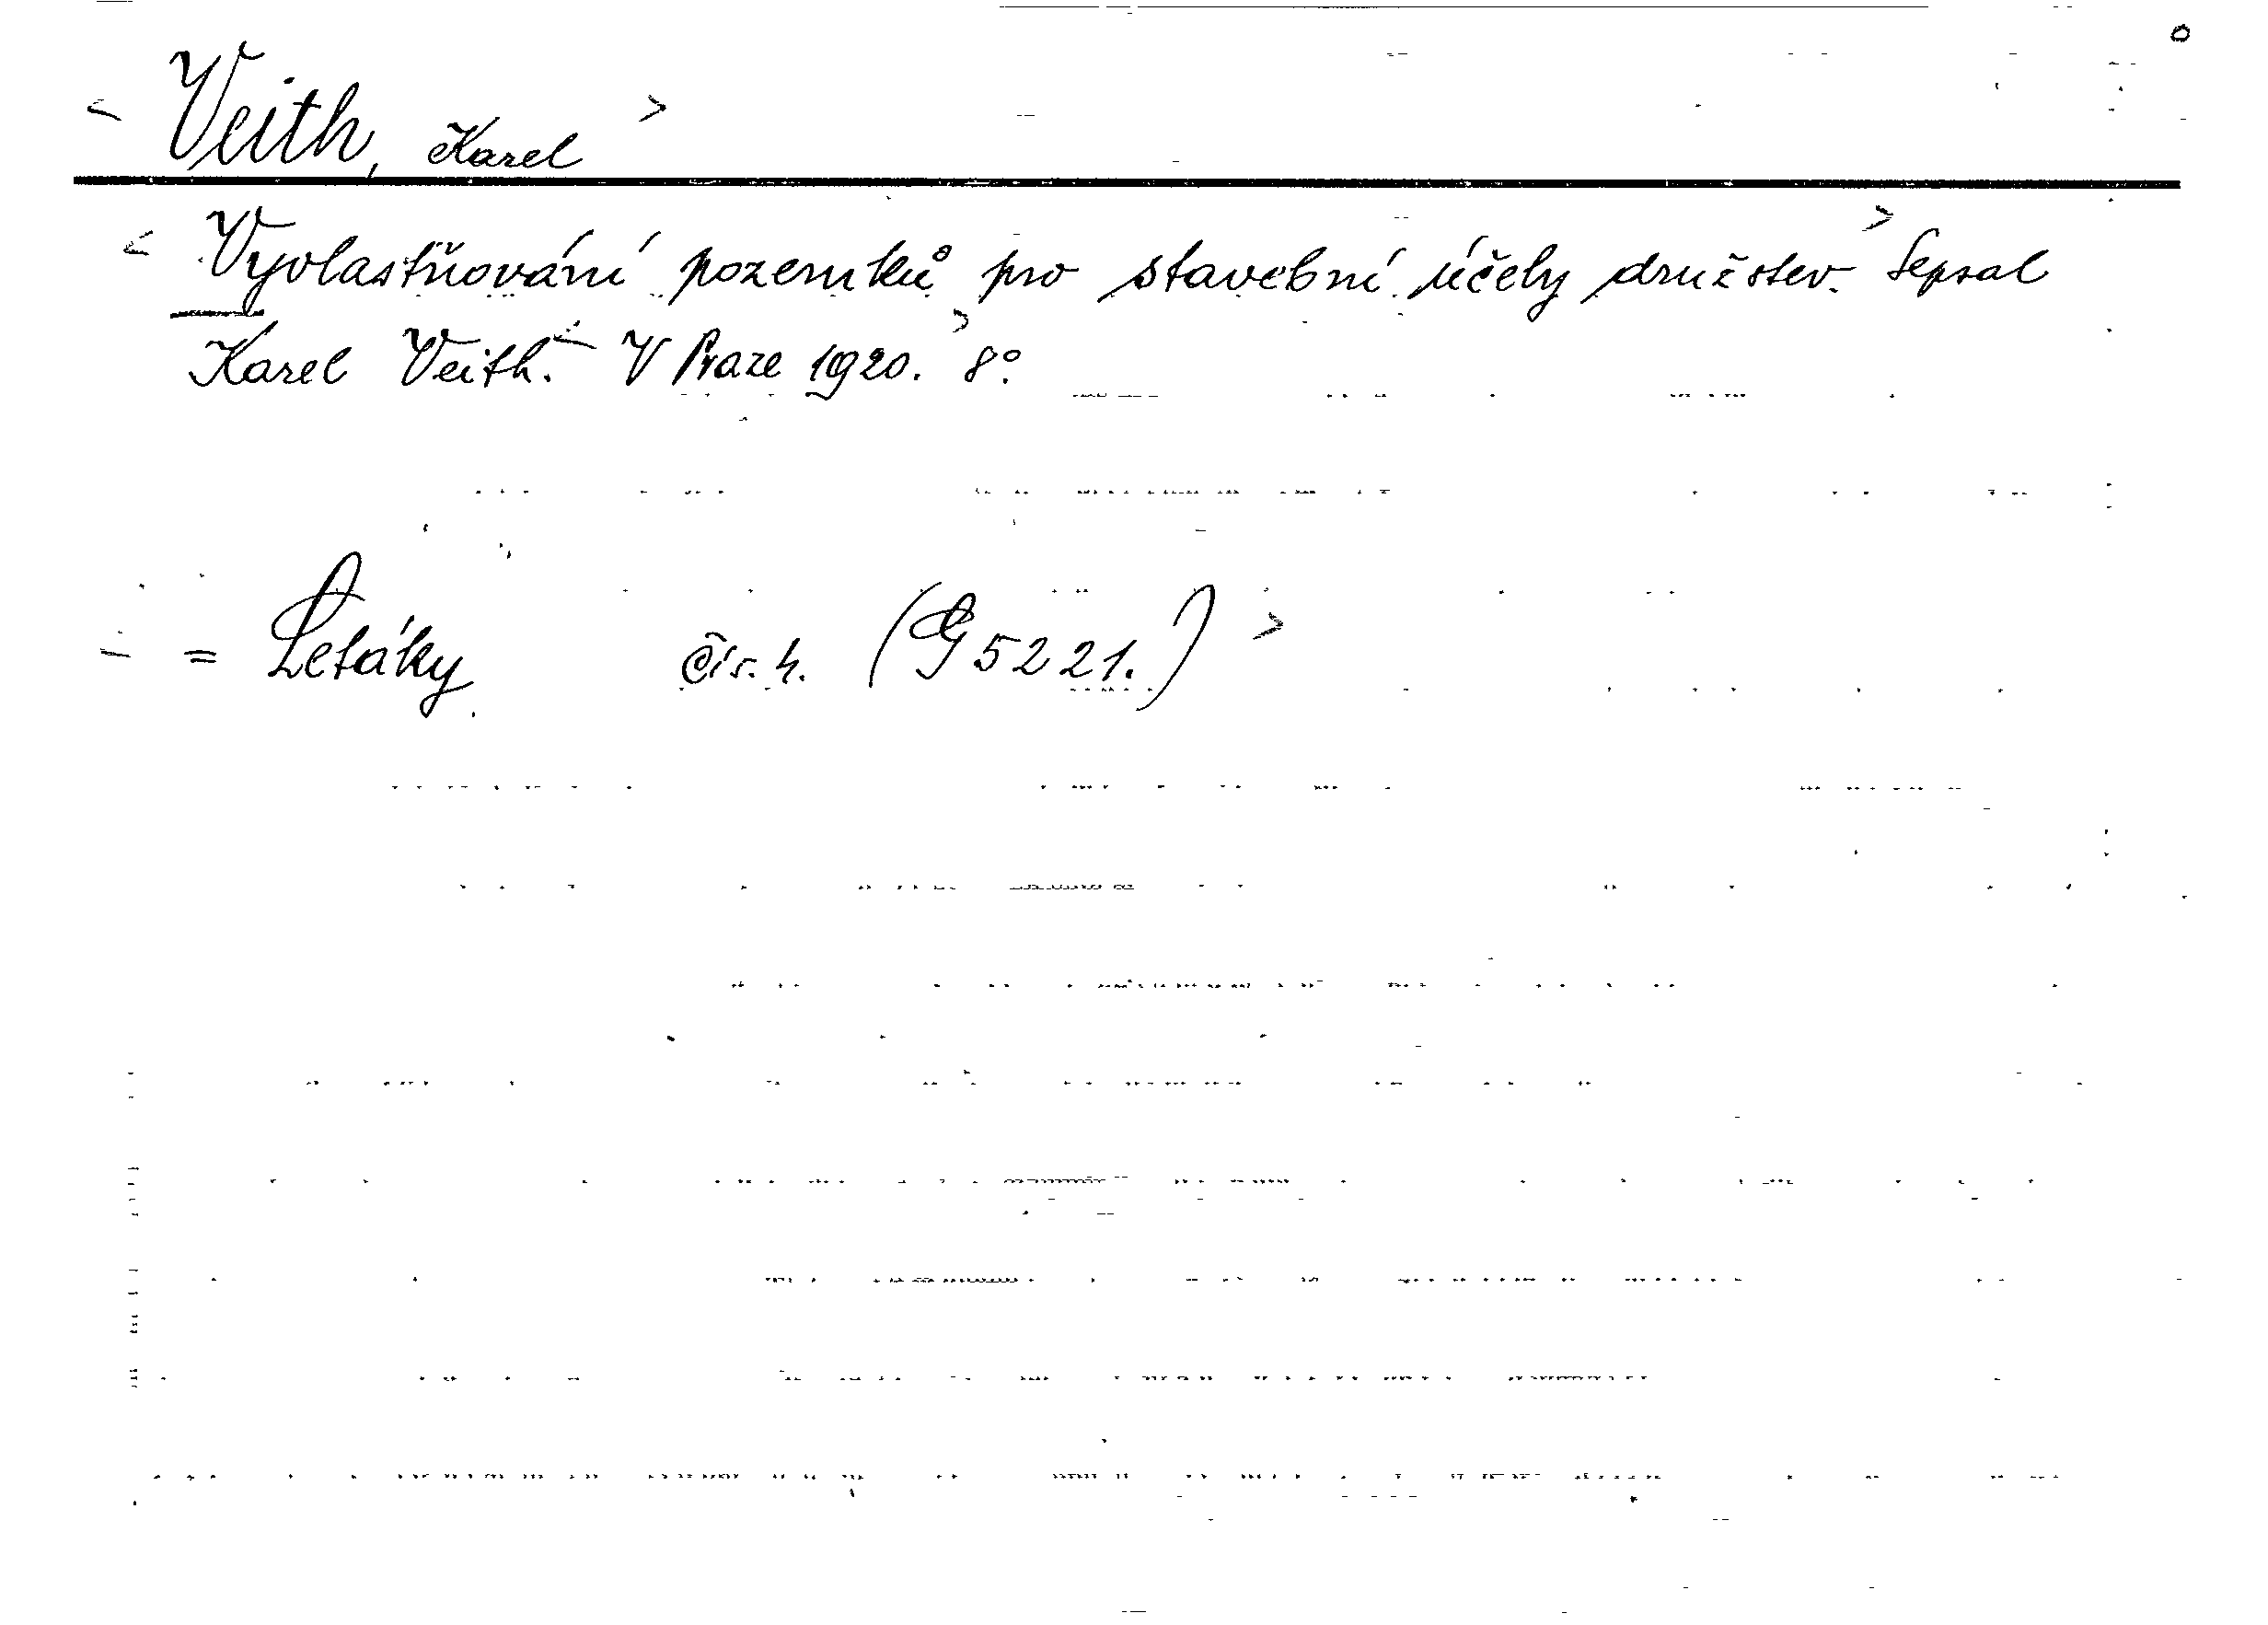 < Veith, Karel >
< Vyvlastňování pozemků pro stavební účely družstev. > Sepsal
Karel Veith. < V Praze 1920. > 8°.
< = Letáky čís. 4. (G 5221.) >